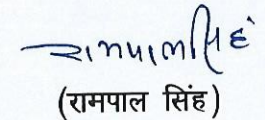 रामपालसिंह
(रामपाल सिंह)